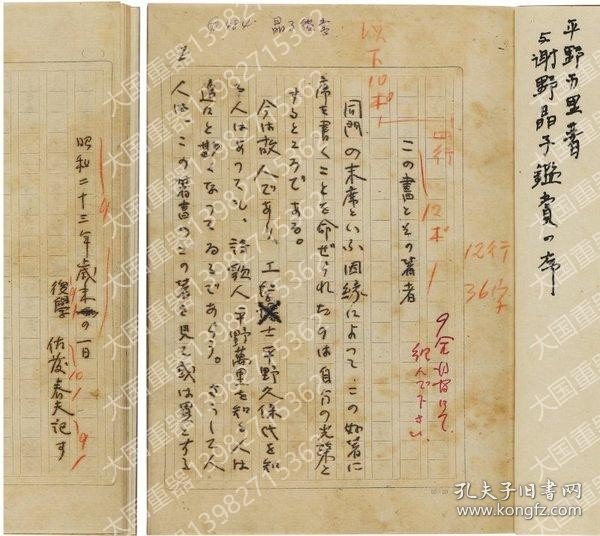 平野万里著
与謝野晶子鑑賞の序
12行
36字
9全部揃えて
組んで下さい
四行
12ポ
この書とその著者
以下10ポ
同門の末席といふ因縁によつて、この好著に
序を書くことを命ぜられたのは自分の光栄と
するところである。
今は故人であり、工学士平野久保氏を知
る人はあつても、詩歌人平野萬里を知る人は
遠々と勘くなつてゐるであらう。さうして人
人は、この著書のこの著を見て或は異とする
昭和二十三年歳末の一日
後学 佐藤春夫記す
大国重器13982715362
孔夫子旧书网
www.kongfz.com